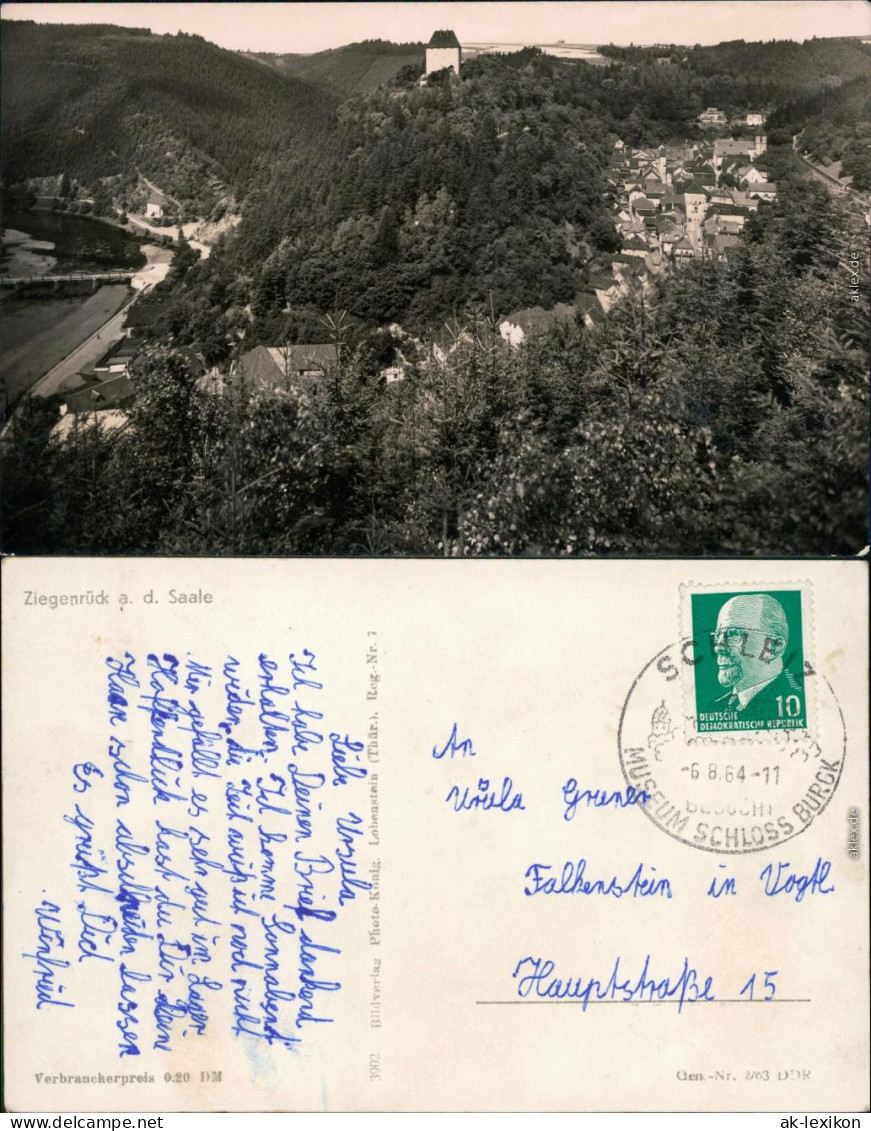 aklex.de
Ziegenrück a. d. Saale
Liebe Ursula
Ich habe Deinen Brief dankend
erhalten. Ich komme Sonnabend
wieder, die Zeit weiß ich noch nicht
Mir gefällt es sehr gut im Lager
Hoffentlich hast du Dir Deine
Haare schon abschneiden lassen
Es grüßt Dich
Winfried
3902 Bildverlag Photo-König, Lobenstein (Thür.), Reg.-Nr. 7
SCHLEIZ
DEUTSCHE
DEMOKRATISCHE REPUBLIK
10
-6.8.64-11
BESUCHT
MUSEUM SCHLOSS BURGK
An
Ursula Gruner
Falkenstein in Vogtl
Hauptstraße 15
aklex.de
Verbraucherpreis 0.20 DM
Gen.-Nr. 2/63 DDR
www.ak-lexikon.de
ak-lexikon